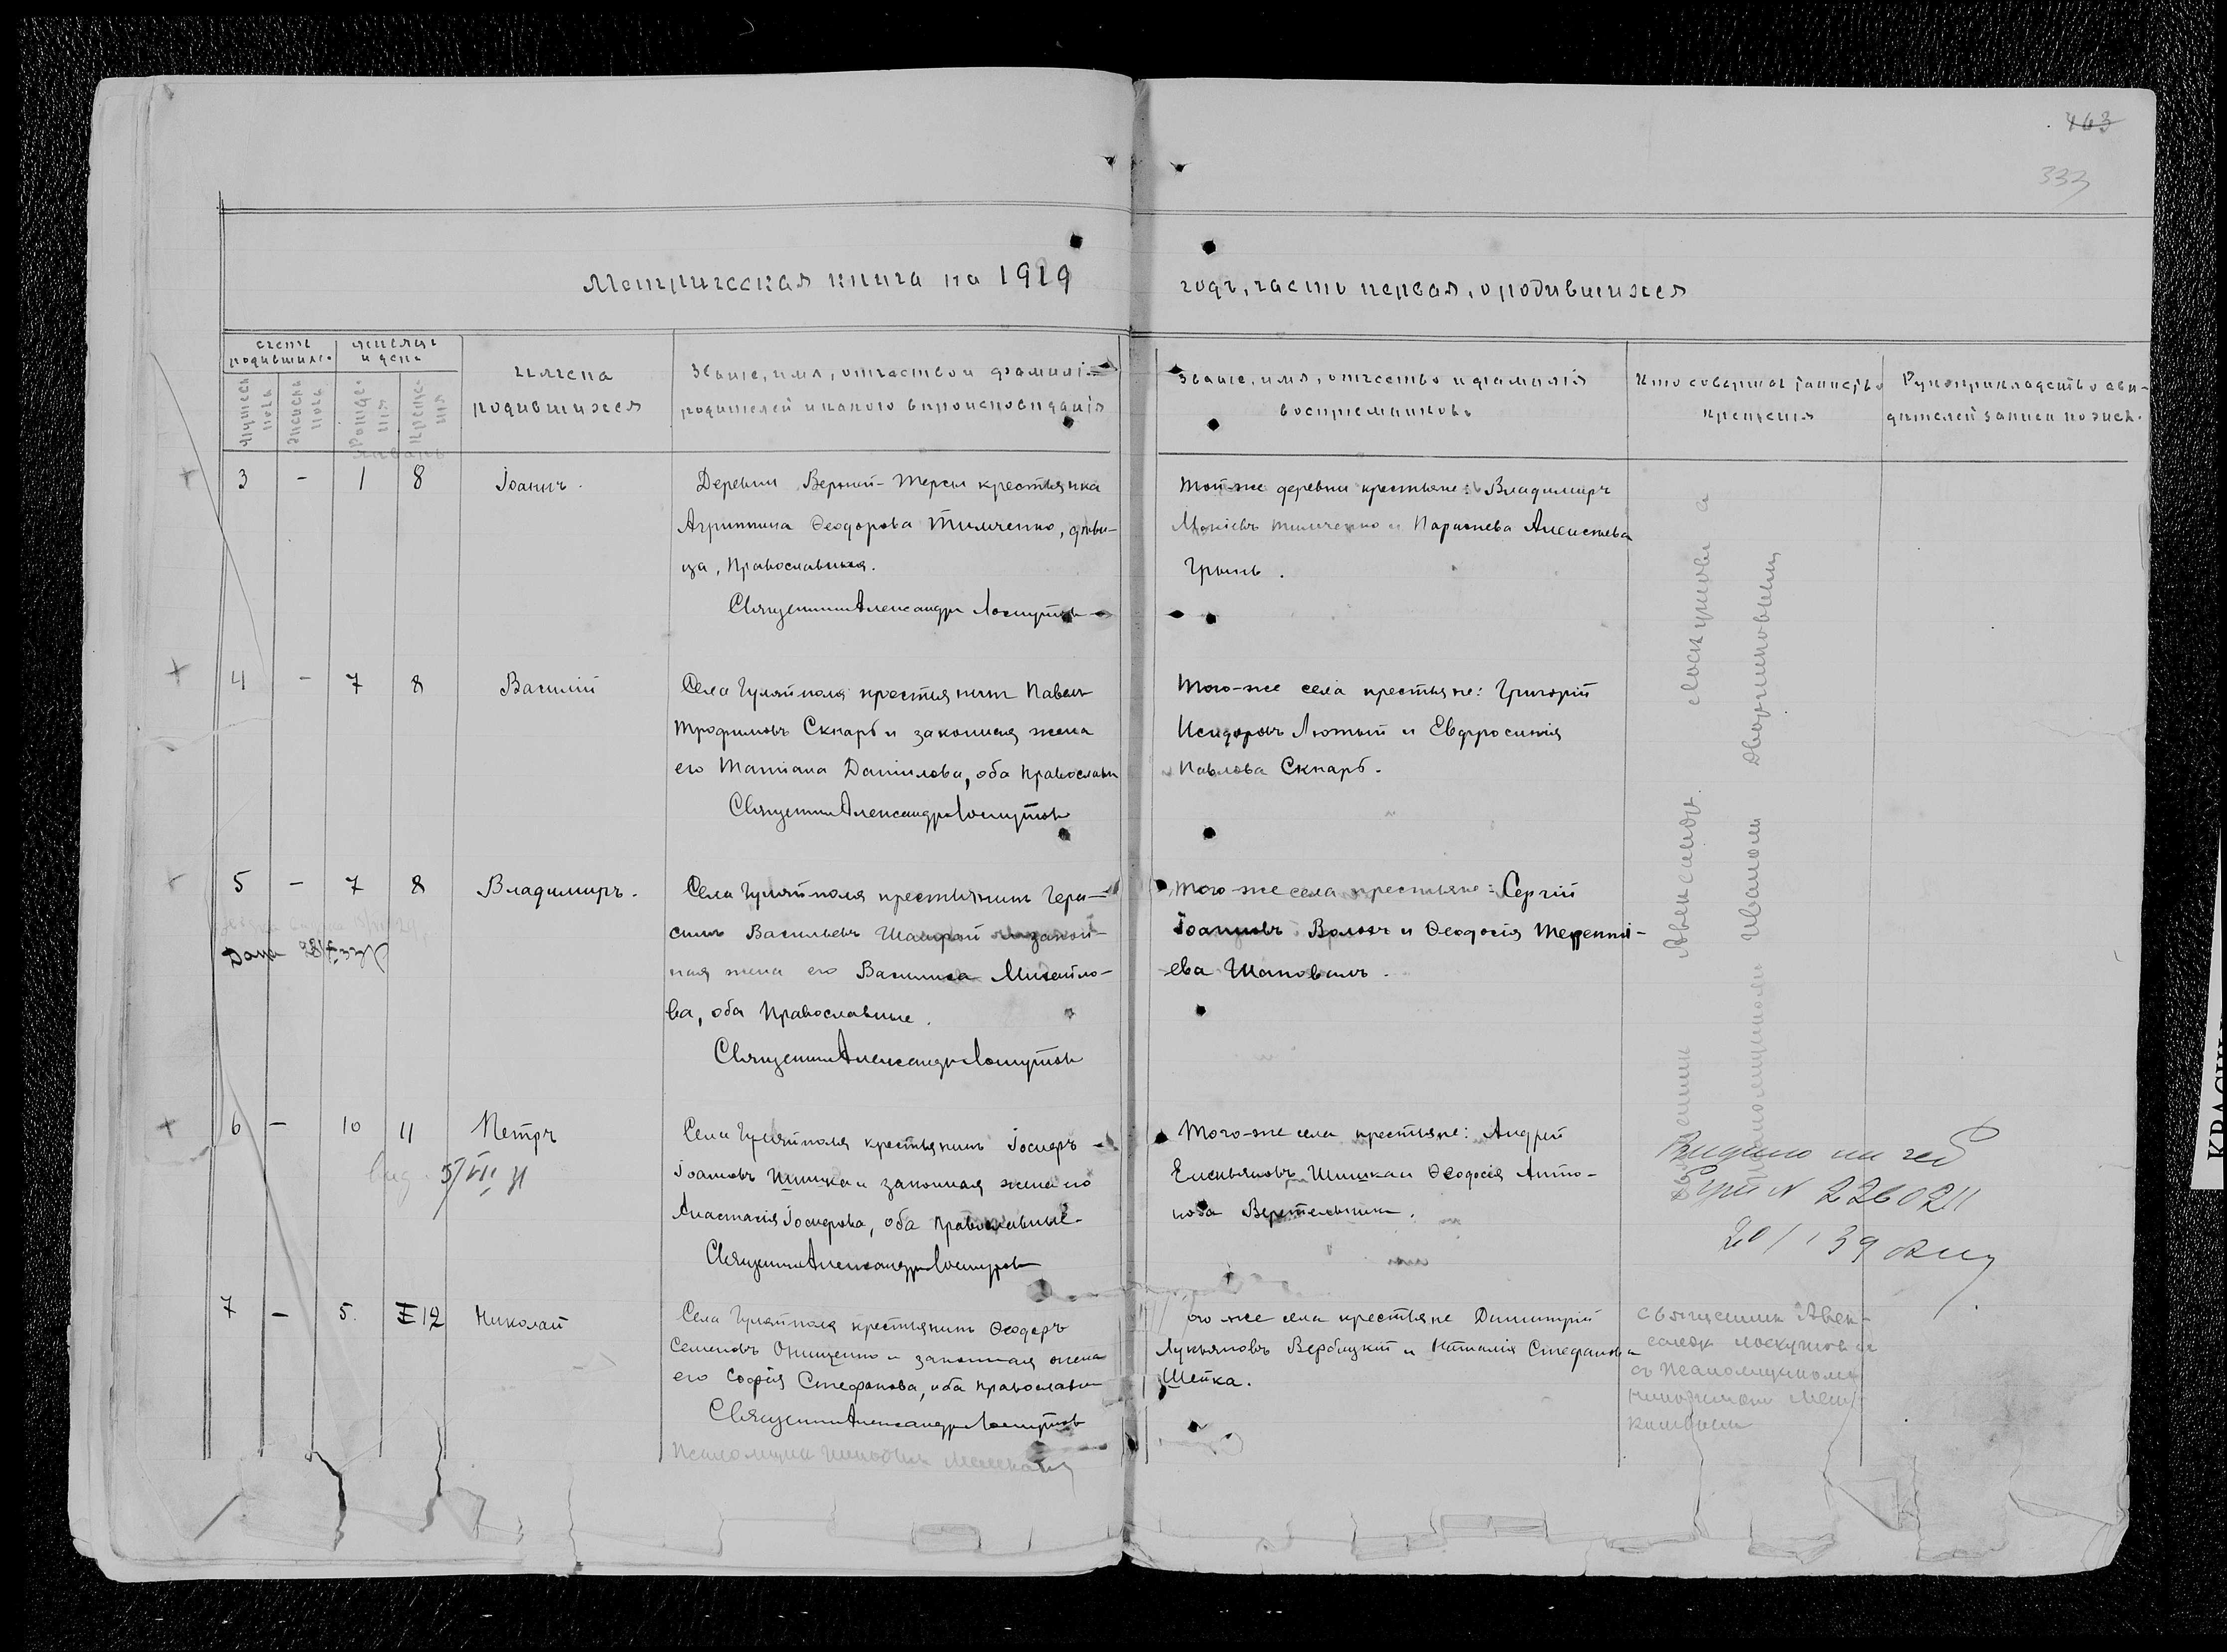 463
333
Метрическая книга на 1919
годъ, часть первая, о родившихся
счетъ родившихс.
мѣсяцъ и день
мужеска пола
женска пола
рожденія
крещенія
январь
имена
родившихся
Званіе, имя, отчество и фамилія
родителей и какого вѣроисповѣданія
Званіе, имя, отчество и фамилія
воспріемниковъ
Кто совершалъ таинство
крещенія
Рукоприкладство сви-
дѣтелей записи по жел.
3 - 1 8 Іоаннъ.
Деревни Верхній-Терсы крестьянка
Агриппина Ѳеодорова Тимченко, дѣви-
ца, Православная.
Священникъ Александръ Лоскутовъ
Той-же деревни крестьяне: Владимиръ
Тимченко и Параскева Алексѣева
Гринь.
4 - 7 8 Василій
Села Гуляйполя крестьянинъ Павелъ
Трофимовъ Скнарь и законная жена
его Татіана Данилова, оба Православн
Священникъ Александръ Лоскутовъ
Того-же села крестьяне: Григорій
Исидоровъ Лютый и Евфросинія
Павлова Скнарь.
5 - 7 8 Владимиръ.
Села Гуляйполя крестьянинъ Гера-
симъ Васильевъ и закон-
ная жена его Василиса Михайло-
ва, оба Православные.
Священникъ Александръ Лоскутовъ
Того-же села крестьяне: Сергій
Іоанновъ Волохъ и Ѳеодосія Терентьи-
ева Шаповалъ.
6 - 10 11 Петръ
5/VII
Села Гуляйполя крестьянинъ Іосифъ
Іоанновъ Шишка и законная жена его
Анастасія Іосифова, оба Православные.
Священникъ Александръ Лоскутовъ
Того-же села крестьяне: Андрей
Емельяновъ Шишка и Ѳеодосія Анто-
нова Веретельникъ.
7 - 5. 12 Николай
Села Гуляйполя крестьянинъ Ѳеодоръ
Семеновъ Онищенко и законная жена
его Софія Стефанова, оба Православн
Священникъ Александръ Лоскутовъ
Псаломщикъ
ого же села крестьяне Димитрій
Лукьяновъ Вербицкій и Наталія Стефанова
Шейка.
Священникъ Александръ Лоскутовъ с
Псаломщикомъ Иваномъ Дворниковымъ
Видано на
№ 226021
20/ 39
Священникъ Алек-
сандръ Лоскутовъ
съ Псаломщикомъ